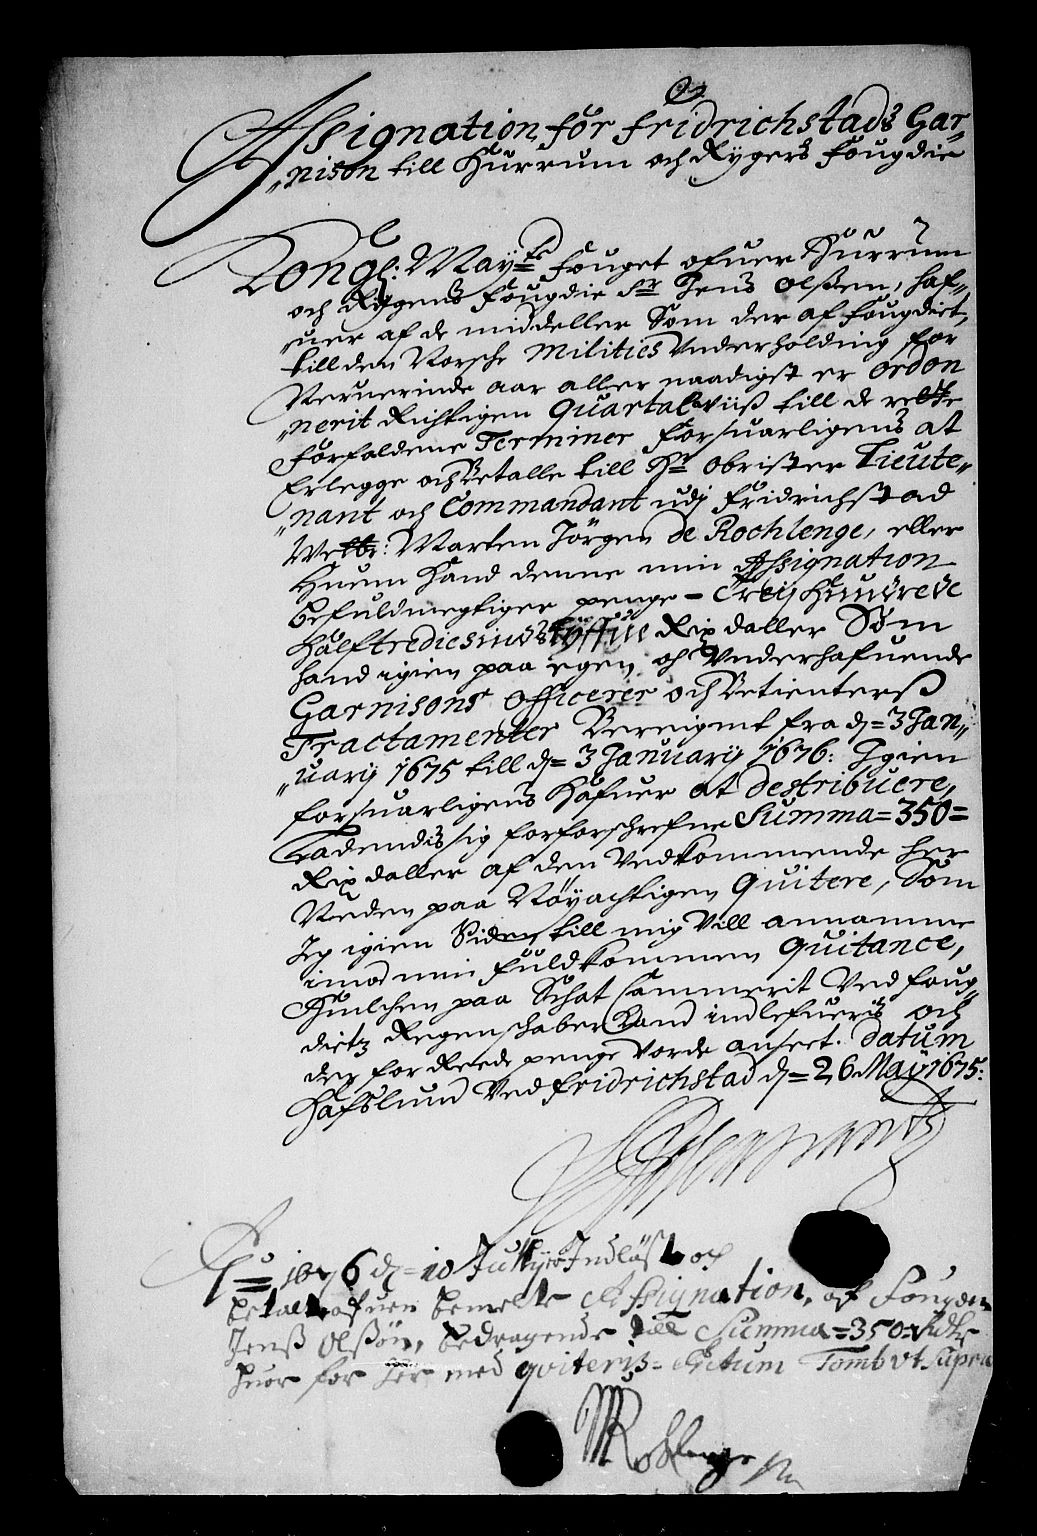 Assignation for Fridrichstads Gar-
nison till Hurrum och Rygers fougdie
Kongl: Maytz fouget ofuer Hurrum
och Rygens fougdie Sr Jens Olssen, haf-
uer af de middeller Som der af fougdiet,
till den Norsche Milities Vnderholding for
Neruerinde aar aller naadigst er ordon
nerit Richtigen Quartalsviis till de rette
forfaldene Terminer forsuarligens at
Erlegge och Betalle till Hr Obrister Lieute-
nant och Commandant udj Fridrichstad
Welbr: Marten Jörgen de Rochlenge, eller
Huem Hand denne min Assignation
befuldmegtiger penge - Treij Hundrede
Halftrediesinds tÿffue Rix daller Som
hand igien paa egen och Vnderhafuende
Garnisons officerer och Betienters
Tractamenter Bereigent fra d= 3 Jan-
uarij 1675 till d= 3 Januarij 1676: Igien
forsuarligens Hafuer at destribuere,
Ladendis sig for forschrefne Summa = 350 =
Rix daller af den Vedkommende her
Neden paa Nöyachtigen Quitere, Som
Jeg igien Siden till mig Vill annamme
imod min fuldkommen Quitance,
Huilchen paa Schat Cammerit Ved foug-
dietz Regenschaber Kand indlefueris och
der for Reede penge Vorde anseet. Datum
Hafslund Ved fridrichstad d= 26 Maÿ 1675:
Ao 1676 d= 10 Jullij er Indläst och
betalt ofuen bemelte Assignation, af Fougden
Jenss Olssön, bedragende till Summa = 350 = Rixdr
huor for her med qviteris = Actum Tomb vt Supra
MRochlenge